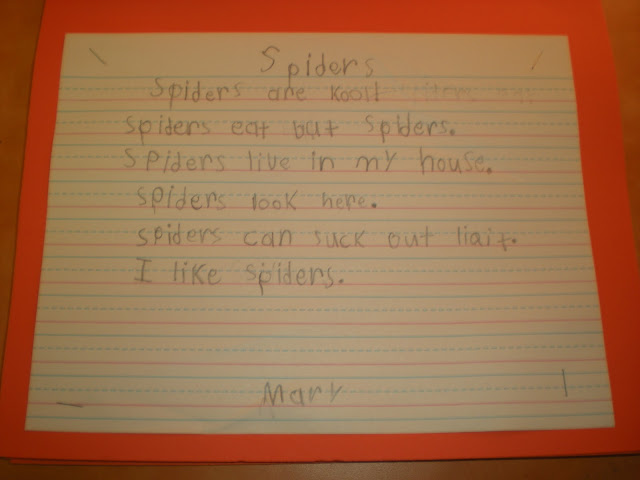 Spiders
Spiders are kool!
spiders eat but spiders.
Spiders live in my house.
spiders look here.
spiders can suck out liait.
I like spiders.
Mary